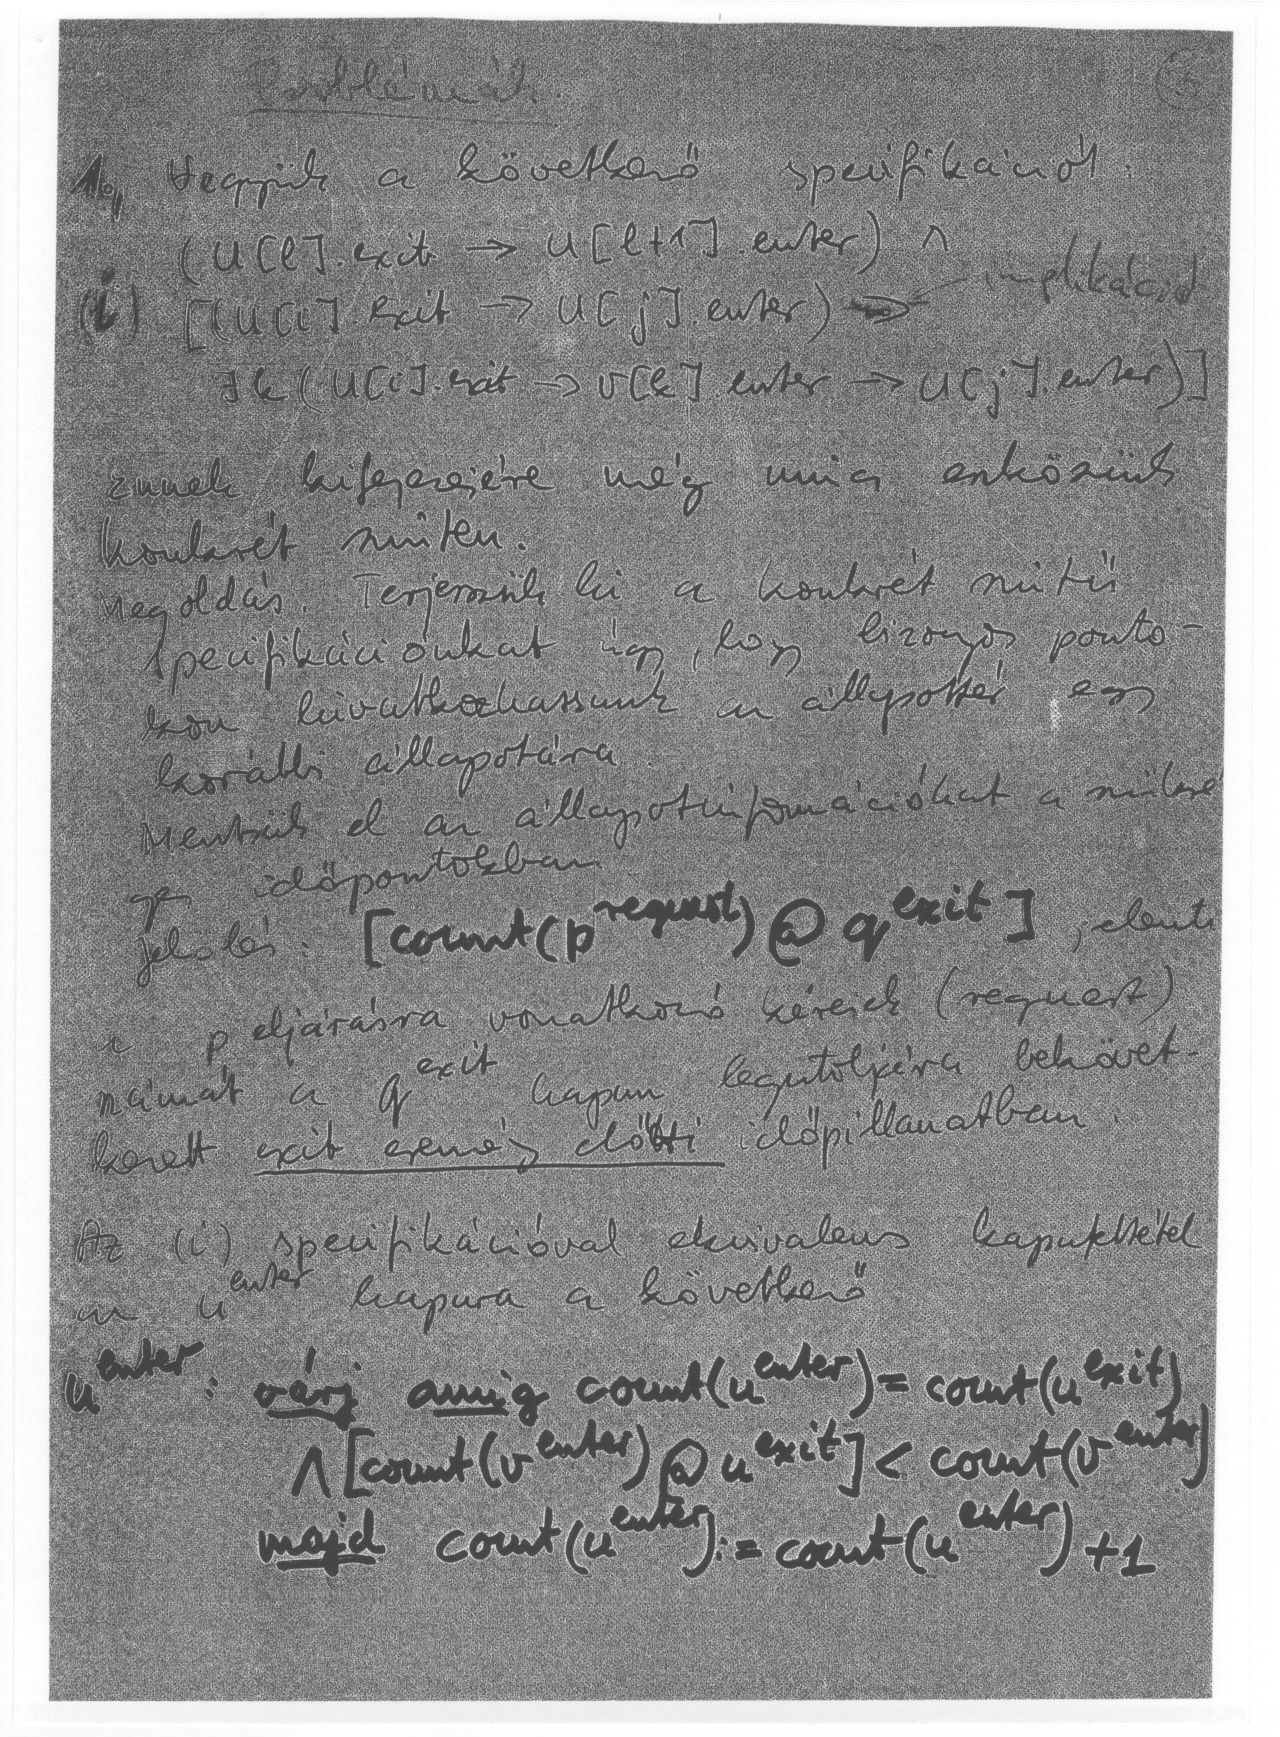 Problémák.
1., Vegyük a következő specifikációt:
(u[l].exit → u[l+1].enter) ∧
(i) [(u[i].exit → u[j].enter) ⇒ ← implikáció
∃k(u[i].exit → v[k].enter → u[j].enter)]
Ennek kifejezésére még nincs eszközünk
konkrét szinten.
Megoldás. Terjesszük ki a konkrét szintű
specifikációnkat úgy, hogy bizonyos ponto-
kon hivatkozhassunk az állapottér egy
korábbi állapotára.
Mentsük el az állapotinformációkat a szüksé
ges időpontokban
Jelölés: [count(p^request)@q^exit], jelenti
a p eljárásra vonatkozó kérések (request)
számát a q^exit kapun legutoljára bekövet-
kezett exit esemény előtti időpillanatban.
Az (i) specifikációval ekvivalens kapufeltétel
az u^enter kapura a következő
u^enter: várj amíg count(u^enter) = count(u^exit)
∧ [count(v^enter)@u^exit] < count(v^enter)
majd count(u^enter) := count(u^enter) + 1